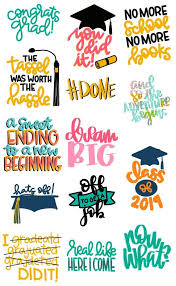 congrats
grad!
you
did it!
NO MORE
school
NO MORE
books
THE
Tassel
WAS WORTH
THE
hassle
#DONE
and
so the
adventure
begins
A sweet
ENDING
TO A NEW
BEGINNING
dream
BIG
class
of
2019
hats off!
OFF
TO GET A
JOB
I gradeatd
graiuated
gradured
I DID IT!
real life
HERE I COME
now
what?